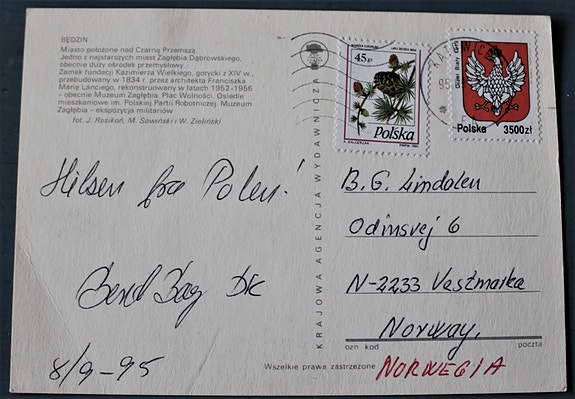 BĘDZIN
Miasto położone nad Czarną Przemszą.
Jedno z najstarszych miast Zagłębia Dąbrowskiego,
obecnie duży ośrodek przemysłowy
Zamek fundacji Kazimierza Wielkiego, gotycki z XIV w.,
przebudowany w 1834 r. przez architekta Franciszka
Marię Lanciego, rekonstruowany w latach 1952–1956
– obecnie Muzeum Zagłębia. Plac Wolności. Osiedle
mieszkaniowe im. Polskiej Partii Robotniczej. Muzeum
Zagłębia – ekspozycja militariów
fot. J. Rosikoń, M. Sowiński i W. Zieliński
Hilsen fra Polen!
8/9-95
KRAJOWA AGENCJA WYDAWNICZA
45zł
Polska
KATOWICE
95
Polska 3500zł
B.G. Lindolen
Odinsvej 6
N-2233 Vestmarka
Norway,
ozn kod poczta
Wszelkie prawa zastrzeżone
NORWEGIA